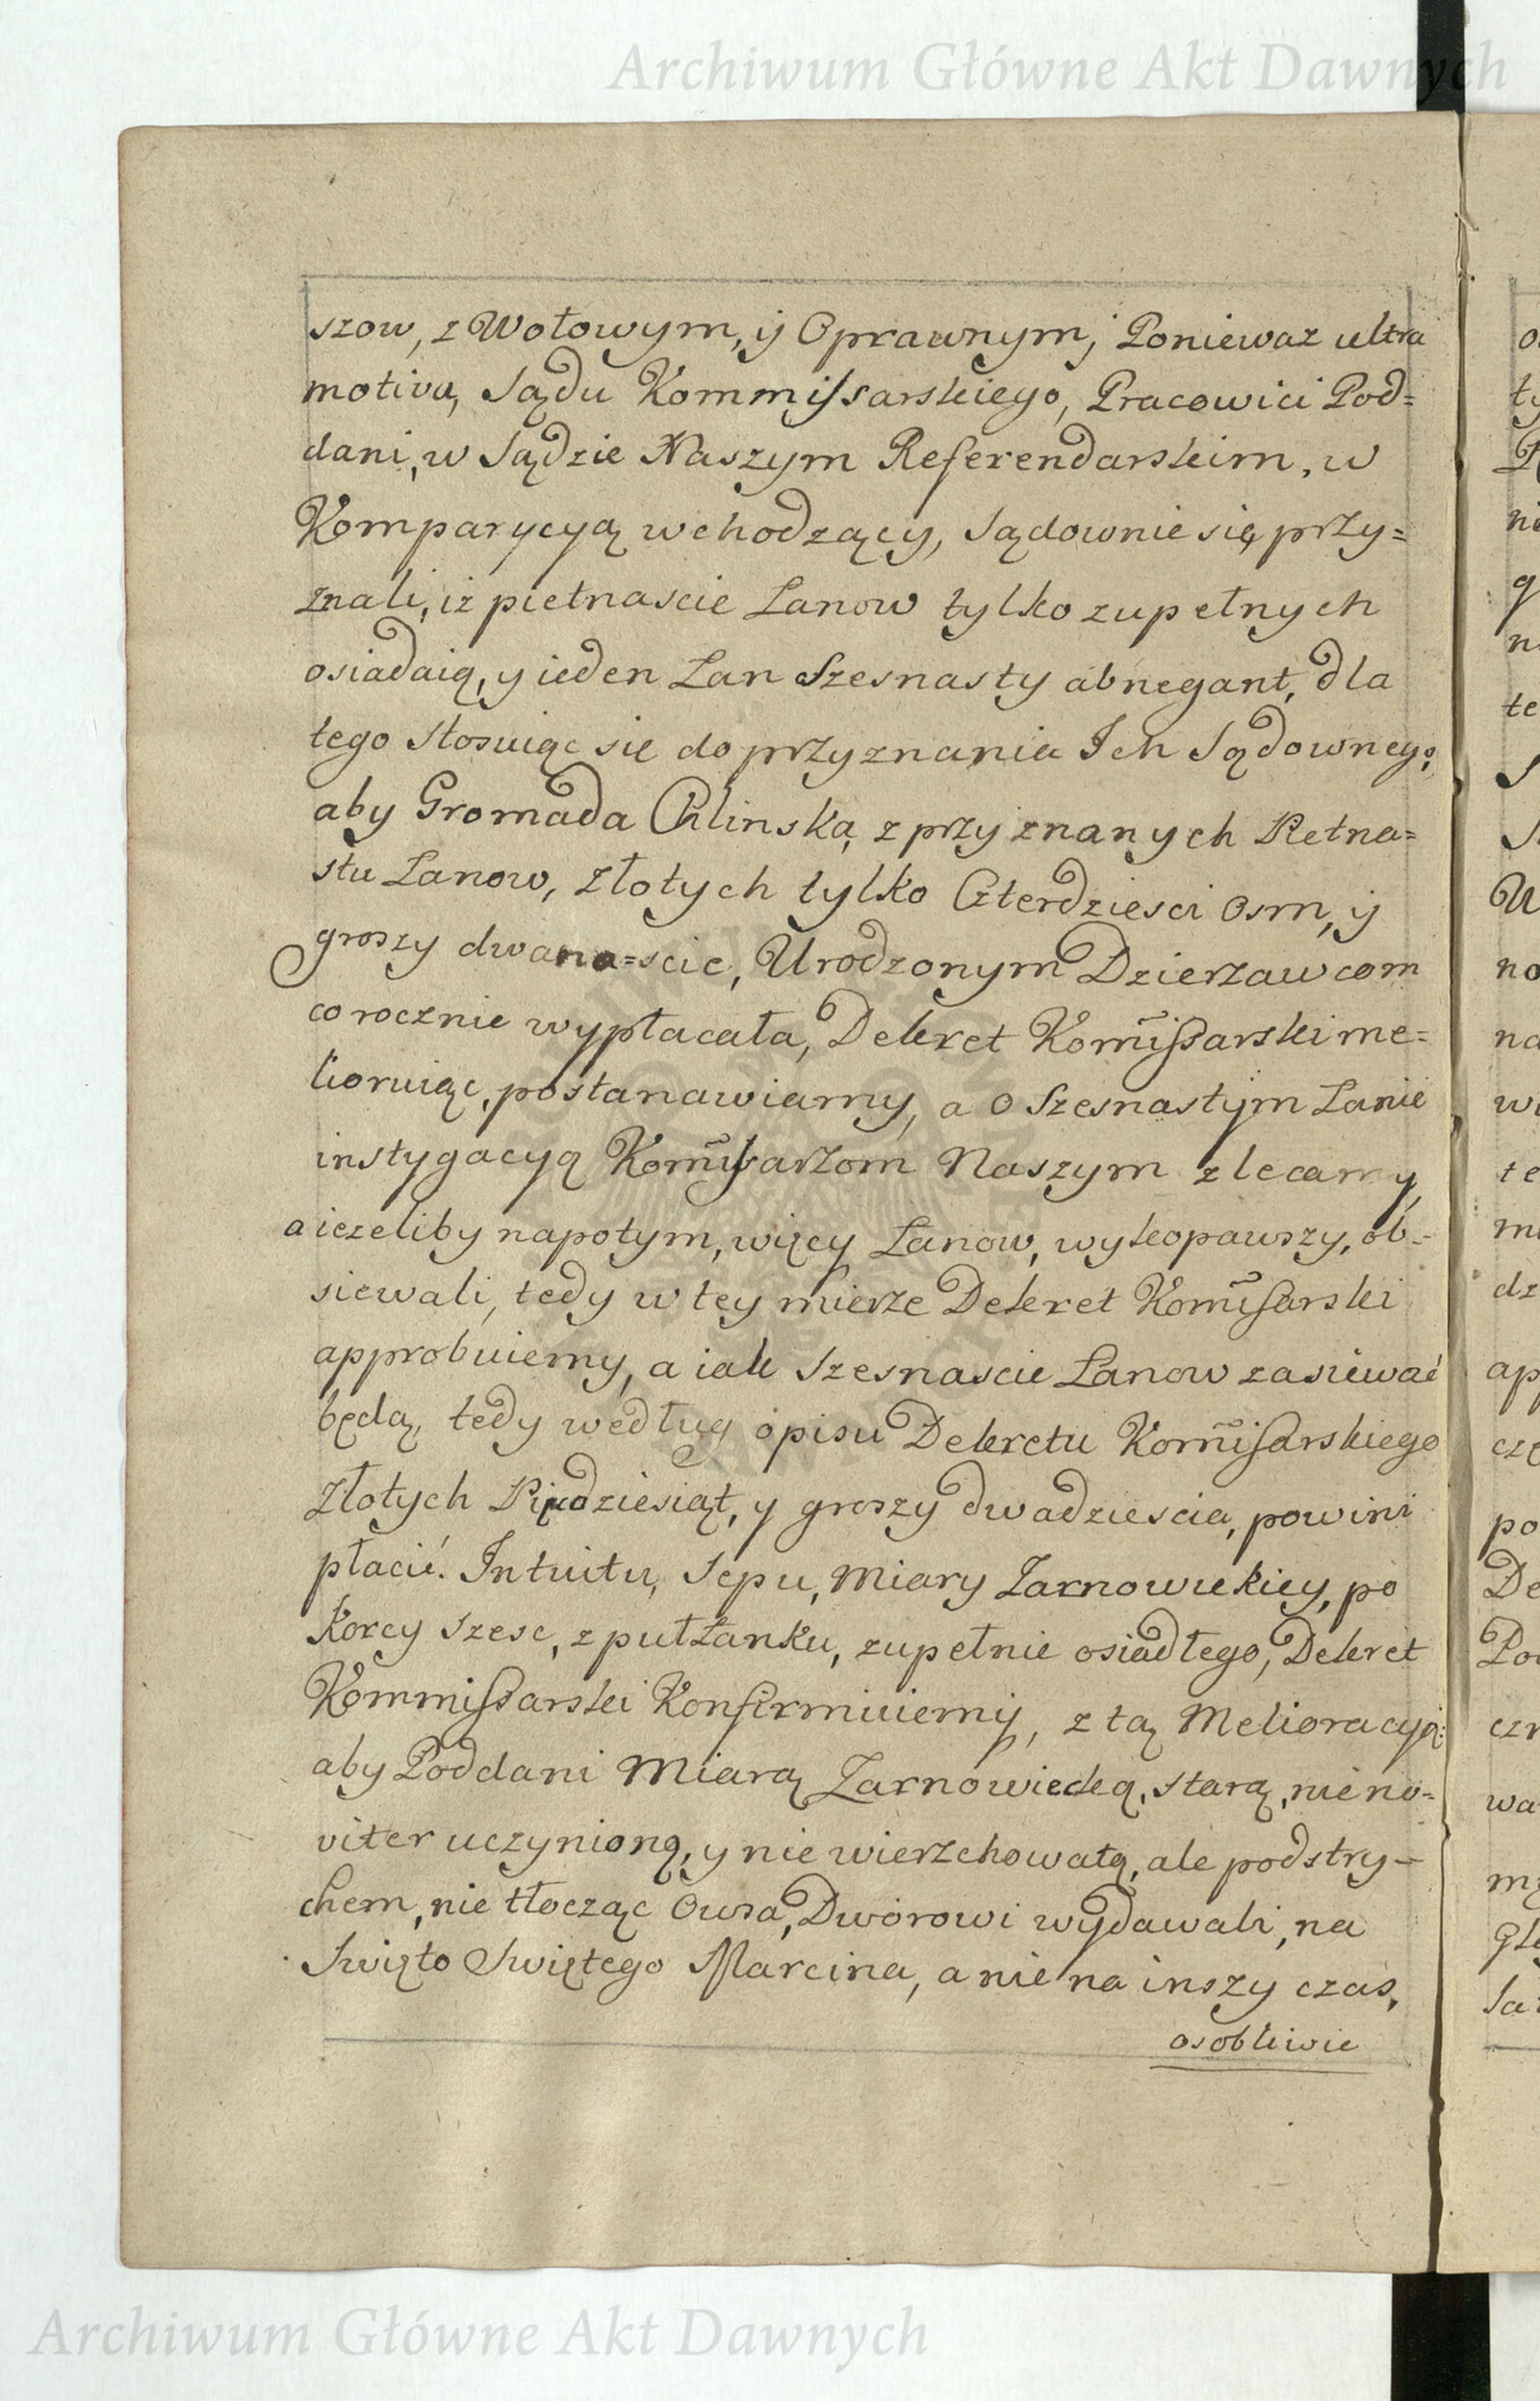 Archiwum Główne Akt Dawnych
szow, z Wołowym, ÿ Oprawnym, Poniewaz ultra
motiva, Sądu Kommissarskiego, Pracowici Pod=
dani, w Sądzie Naszym Referendarskim, w
Komparycyą wchodzący, Sądownie się przy=
znali, iż pietnascie Lanow tylko zupełnych
osiadaią, y ieden Lan Szesnasty abnegant, dla
tego stosuiąc się do przyznania Ich Sądownego,
aby Gromada Chlinska, z przyznanych Pietna=
stu Lanow, złotych tylko Czterdziesci osm, ÿ
groszy dwana=scie, Urodzonym Dzierzawcom
corocznie wypłacała, Dekret Kom̃issarski me=
lioruiąc, postanawiamy, a o Szesnastym Lanie
instygacyą Kom̃issarzom Naszym zlecamy,
a iezeliby napotym, więcy Lanow, wykopawszy, ob=
siewali, tedy w tey mierze Dekret Kom̃isarski
approbuiemy, a iak Szesnascie Lanow zasiewać
będą, tedy według opisu Dekretu Kom̃isarskiego
Złotych Pięcdziesiąt, y groszy dwadziescia, powini
płacić. Intuitu, Sepu, Miary Zarnowieckiey, po
Korcy szesc, z pułLanku, zupełnie osiadłego, Dekret
Kommissarski Konfirmuiemy, z tą Melioracyą:
aby Poddani Miarą Zarnowiecką, starą, nie no=
viter uczynioną, y nie wierzchowatą, ale podstry=
chem, nie tłocząc Owsa, Dworowi wydawali, na
Swięto Swiętego Marcina, a nie na inszy czas,
osobliwie
Archiwum Główne Akt Dawnych